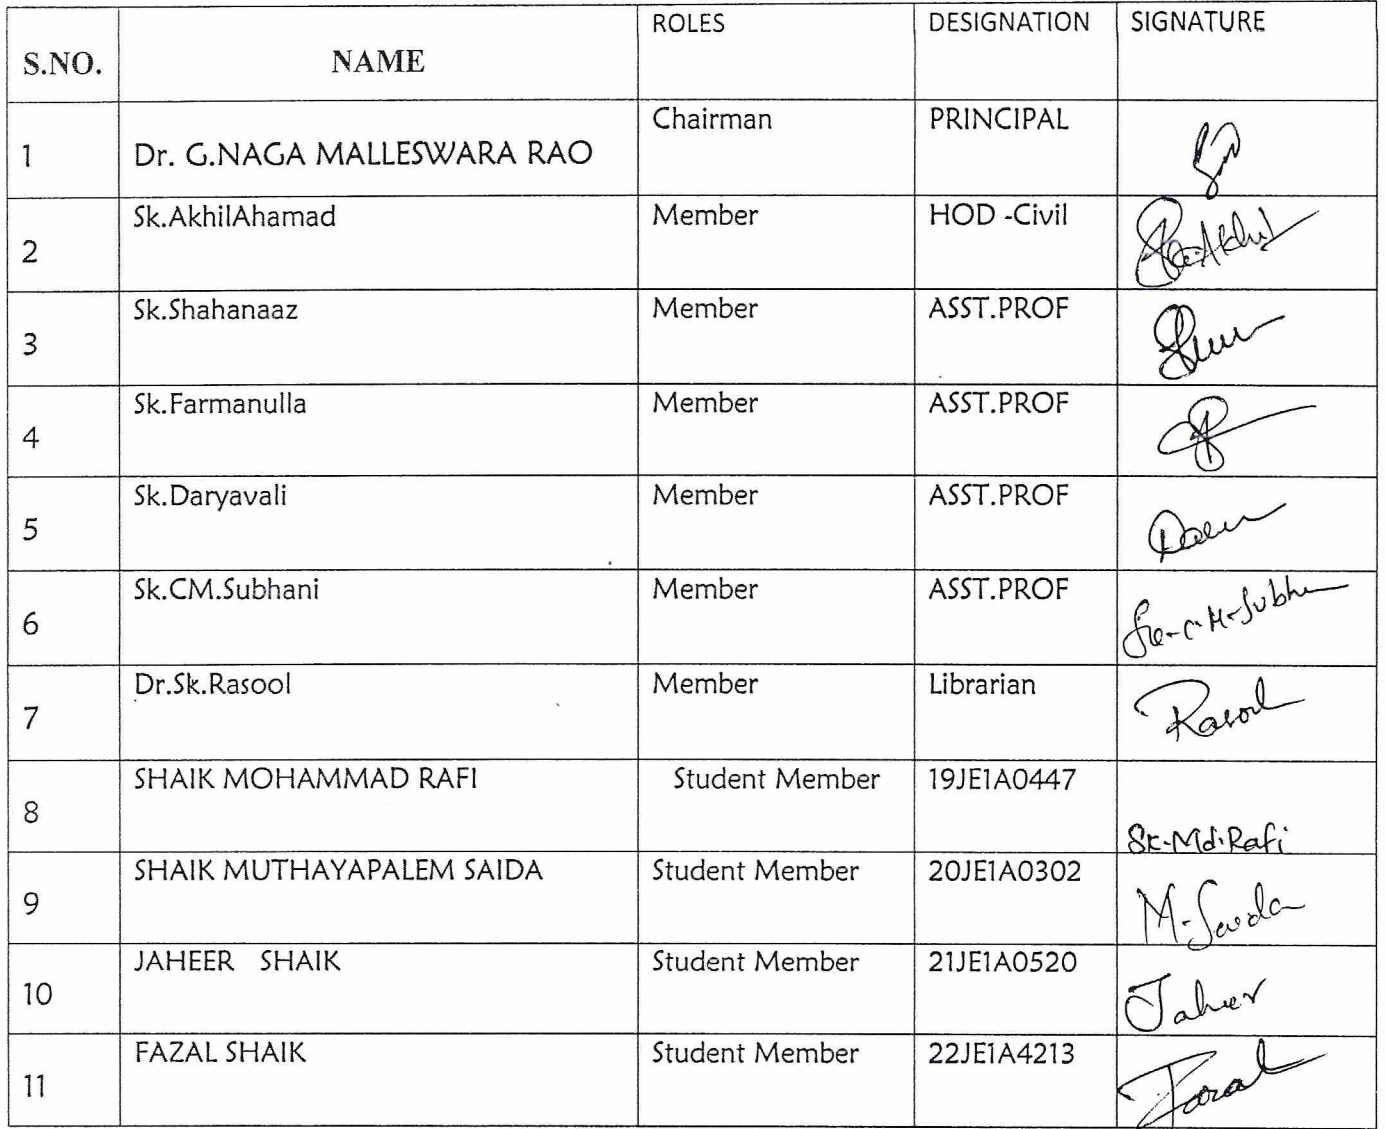 S.NO. NAME ROLES DESIGNATION SIGNATURE
1 Dr. G.NAGA MALLESWARA RAO Chairman PRINCIPAL
2 Sk.AkhilAhamad Member HOD -Civil
3 Sk.Shahanaaz Member ASST.PROF
4 Sk.Farmanulla Member ASST.PROF
5 Sk.Daryavali Member ASST.PROF
6 Sk.CM.Subhani Member ASST.PROF
7 Dr.Sk.Rasool Member Librarian Rasool
8 SHAIK MOHAMMAD RAFI Student Member 19JE1A0447 Sk.Md.Rafi
9 SHAIK MUTHAYAPALEM SAIDA Student Member 20JE1A0302 M.Saida
10 JAHEER SHAIK Student Member 21JE1A0520 Jaheer
11 FAZAL SHAIK Student Member 22JE1A4213 Fazal